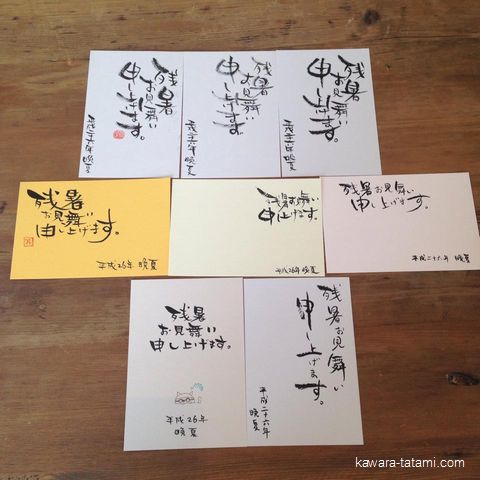 残暑
お見舞い
申し上げます。
平成二十六年 晩夏
残暑
お見舞い
申し上げます。
平成二十六年 晩夏
残暑
お見舞い
申し上げます。
平成二十六年 晩夏
残暑
お見舞い
申し上げます。
平成26年 晩夏
残暑お見舞い
申し上げます。
平成26年 晩夏
残暑お見舞い
申し上げます。
平成二十六年 晩夏
残暑
お見舞い
申し上げます。
平成26年
晩夏
残暑お見舞い
申し上げます。
平成二十六年
晩夏
kawara-tatami.com